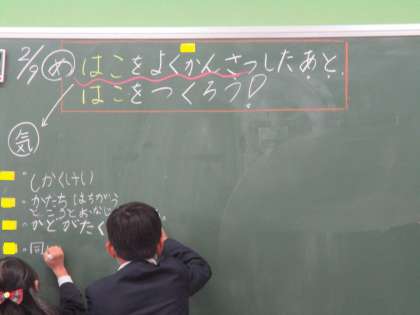 2/9 め はこをよくかんさつしたあと、
はこをつくろう!
気
しかくけい
かたちはちがう
ところとおなじ
かどがたく
同